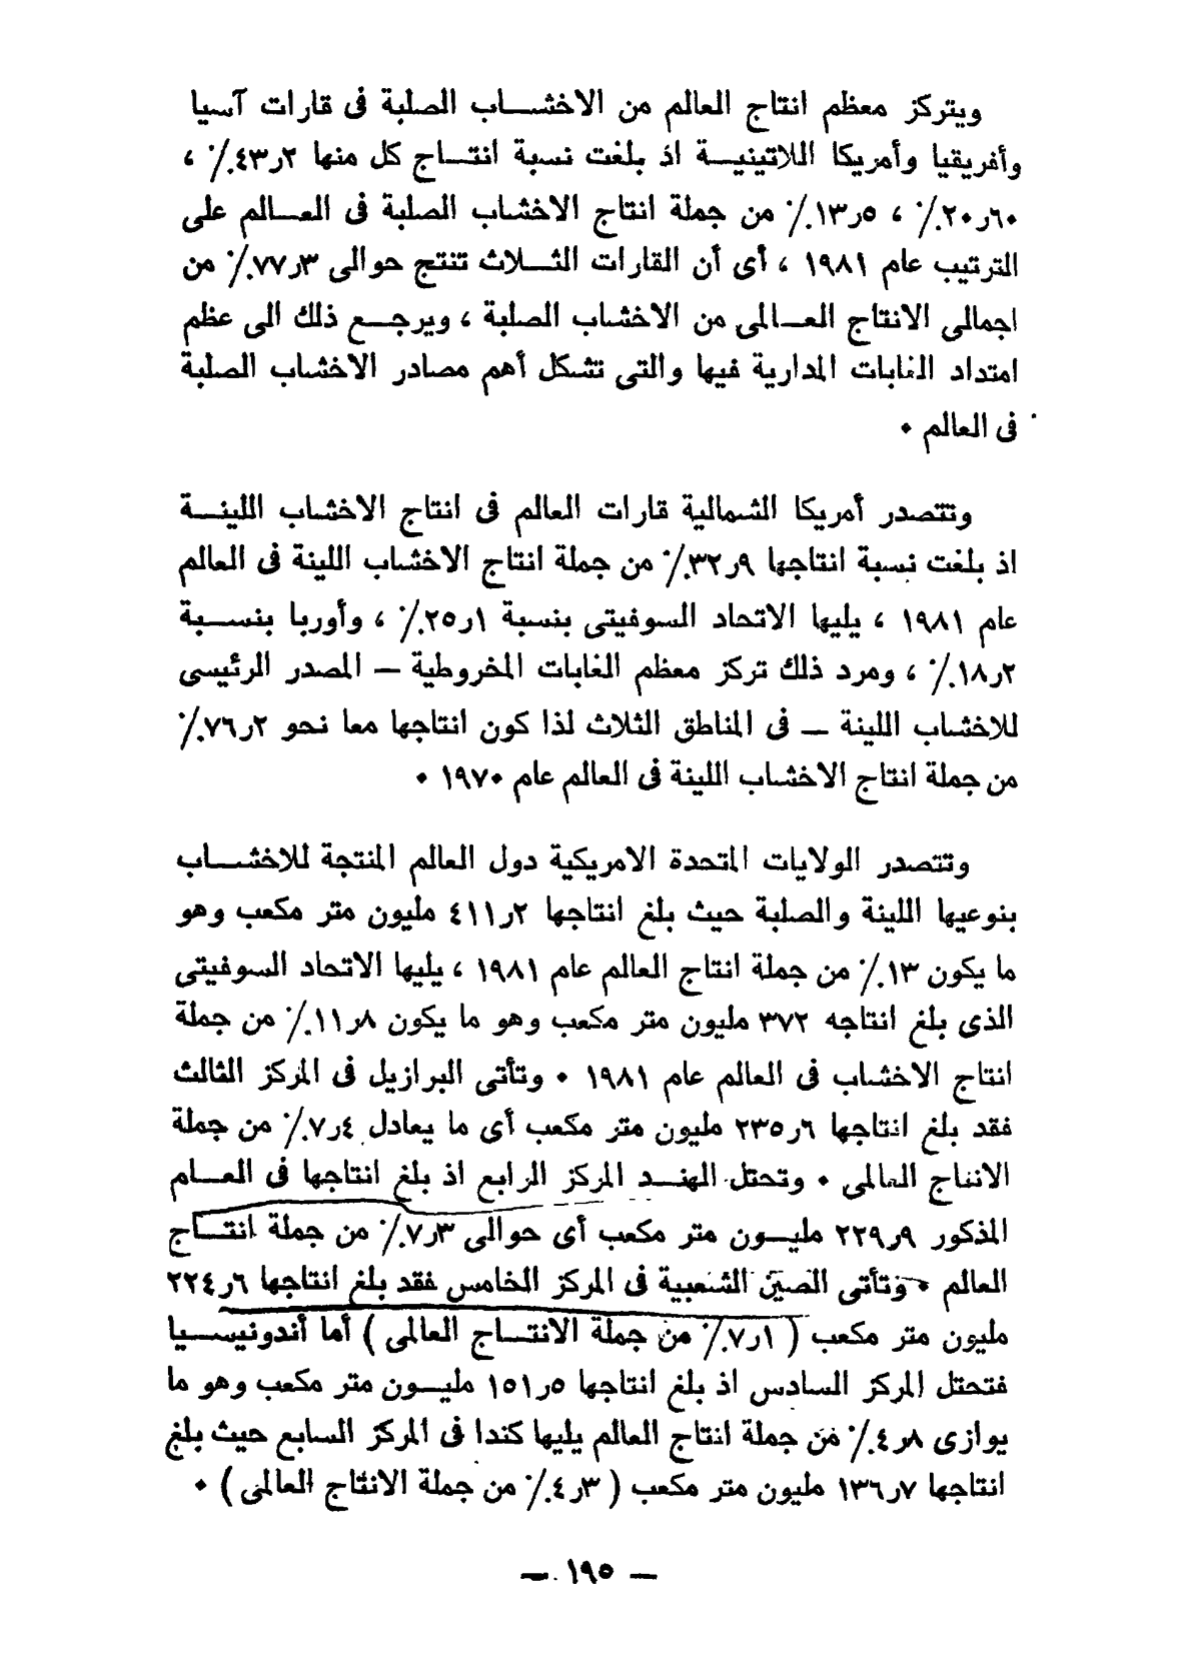 ويتركز معظم انتاج العالم من الاخشاب الصلبة فى قارات آسيا
وأفريقيا وأمريكا اللاتينية اذ بلغت نسبة انتاج كل منها ٢ر٤٣٪ ،
٦٠ر٢٠٪ ، ٥ر١٣٪ من جملة انتاج الاخشاب الصلبة فى العالم على
الترتيب عام ١٩٨١ ، أى أن القارات الثلاث تنتج حوالى ٣ر٧٧٪ من
اجمالى الانتاج العالمى من الاخشاب الصلبة ، ويرجع ذلك الى عظم
امتداد الغابات المدارية فيها والتى تشكل أهم مصادر الاخشاب الصلبة
فى العالم ٠
وتتصدر أمريكا الشمالية قارات العالم فى انتاج الاخشاب اللينة
اذ بلغت نسبة انتاجها ٩ر٣٢٪ من جملة انتاج الاخشاب اللينة فى العالم
عام ١٩٨١ ، يليها الاتحاد السوفيتى بنسبة ١ر٢٥٪ ، وأوربا بنسبة
٢ر١٨٪ ، ومرد ذلك تركز معظم الغابات المخروطية — المصدر الرئيسى
للاخشاب اللينة — فى المناطق الثلاث لذا كون انتاجها معا نحو ٢ر٧٦٪
من جملة انتاج الاخشاب اللينة فى العالم عام ١٩٧٠ ٠
وتتصدر الولايات المتحدة الامريكية دول العالم المنتجة للاخشاب
بنوعيها اللينة والصلبة حيث بلغ انتاجها ٢ر٤١١ مليون متر مكعب وهو
ما يكون ١٣٪ من جملة انتاج العالم عام ١٩٨١ ، يليها الاتحاد السوفيتى
الذى بلغ انتاجه ٣٧٢ مليون متر مكعب وهو ما يكون ٨ر١١٪ من جملة
انتاج الاخشاب فى العالم عام ١٩٨١ ٠ وتأتى البرازيل فى المركز الثالث
فقد بلغ انتاجها ٦ر٢٣٥ مليون متر مكعب أى ما يعادل ٤ر٧٪ من جملة
الانتاج العالمى ٠ وتحتل الهند المركز الرابع اذ بلغ انتاجها فى العام
المذكور ٩ر٢٢٩ مليون متر مكعب أى حوالى ٣ر٧٪ من جملة انتاج
العالم ٠ وتأتى الصين الشعبية فى المركز الخامس فقد بلغ انتاجها ٦ر٢٢٤
مليون متر مكعب ( ١ر٧٪ من جملة الانتاج العالمى ) أما أندونيسيا
فتحتل المركز السادس اذ بلغ انتاجها ٥ر١٥١ مليون متر مكعب وهو ما
يوازى ٨ر٤٪ من جملة انتاج العالم يليها كندا فى المركز السابع حيث بلغ
انتاجها ٧ر١٣٦ مليون متر مكعب ( ٣ر٤٪ من جملة الانتاج العالمى ) ٠
— ١٩٥ —